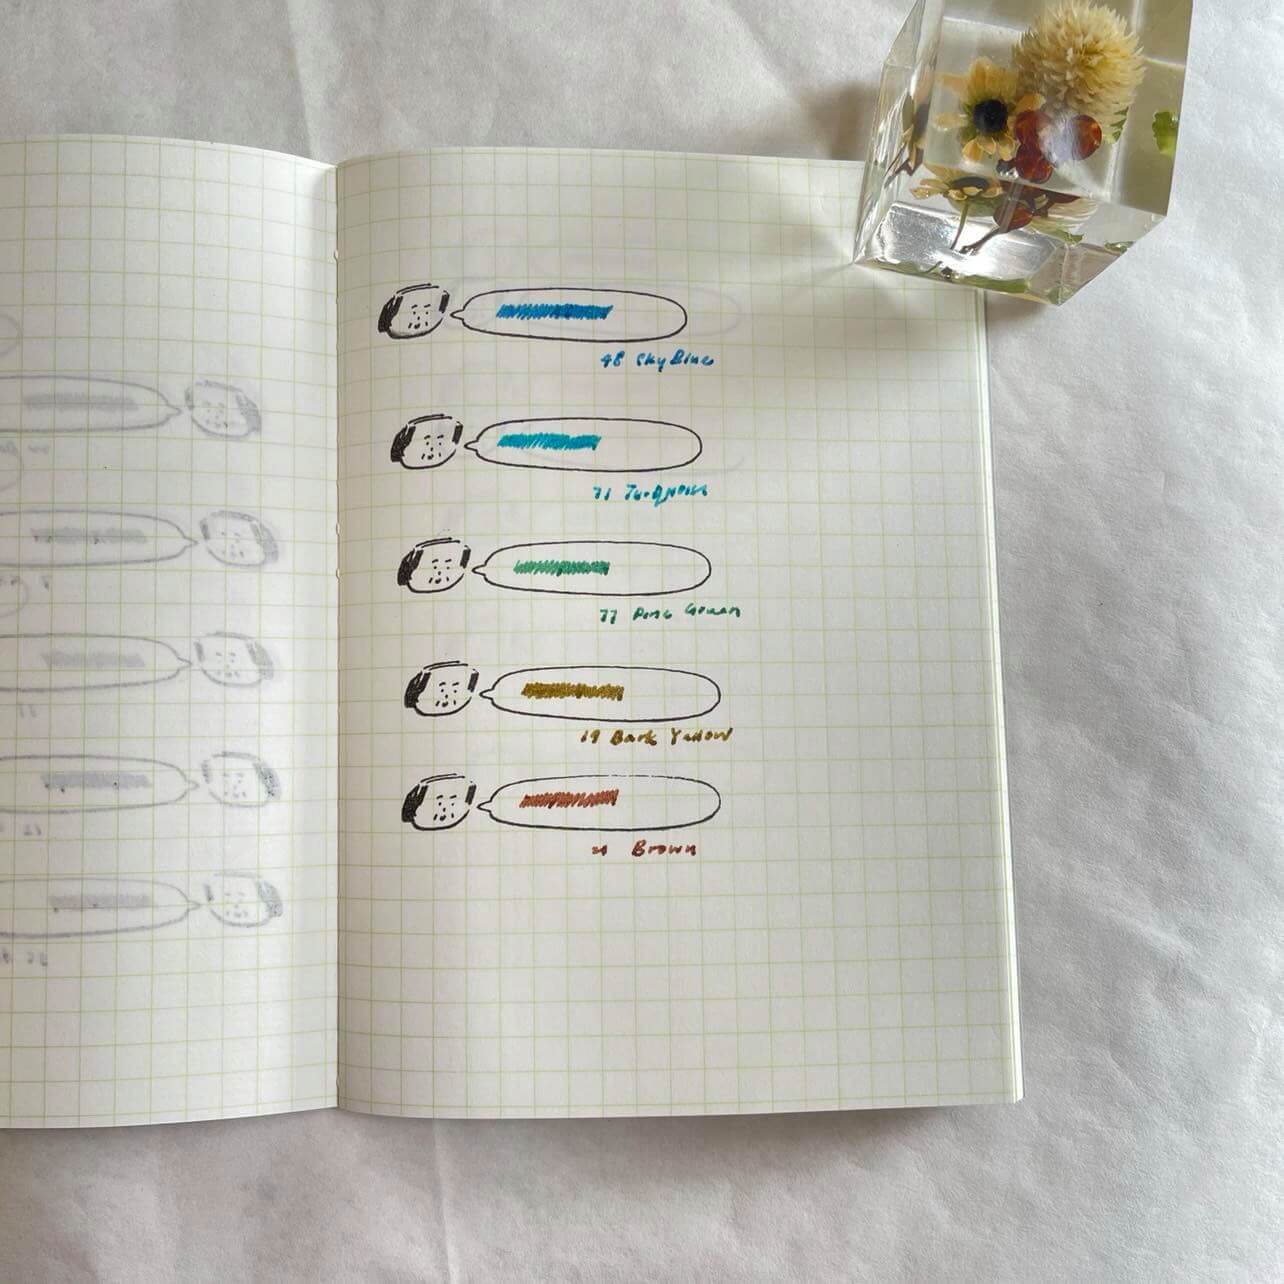 48 Sky Blue
71 Turquoise
77 Pine Green
19 Bark Yellow
21 Brown